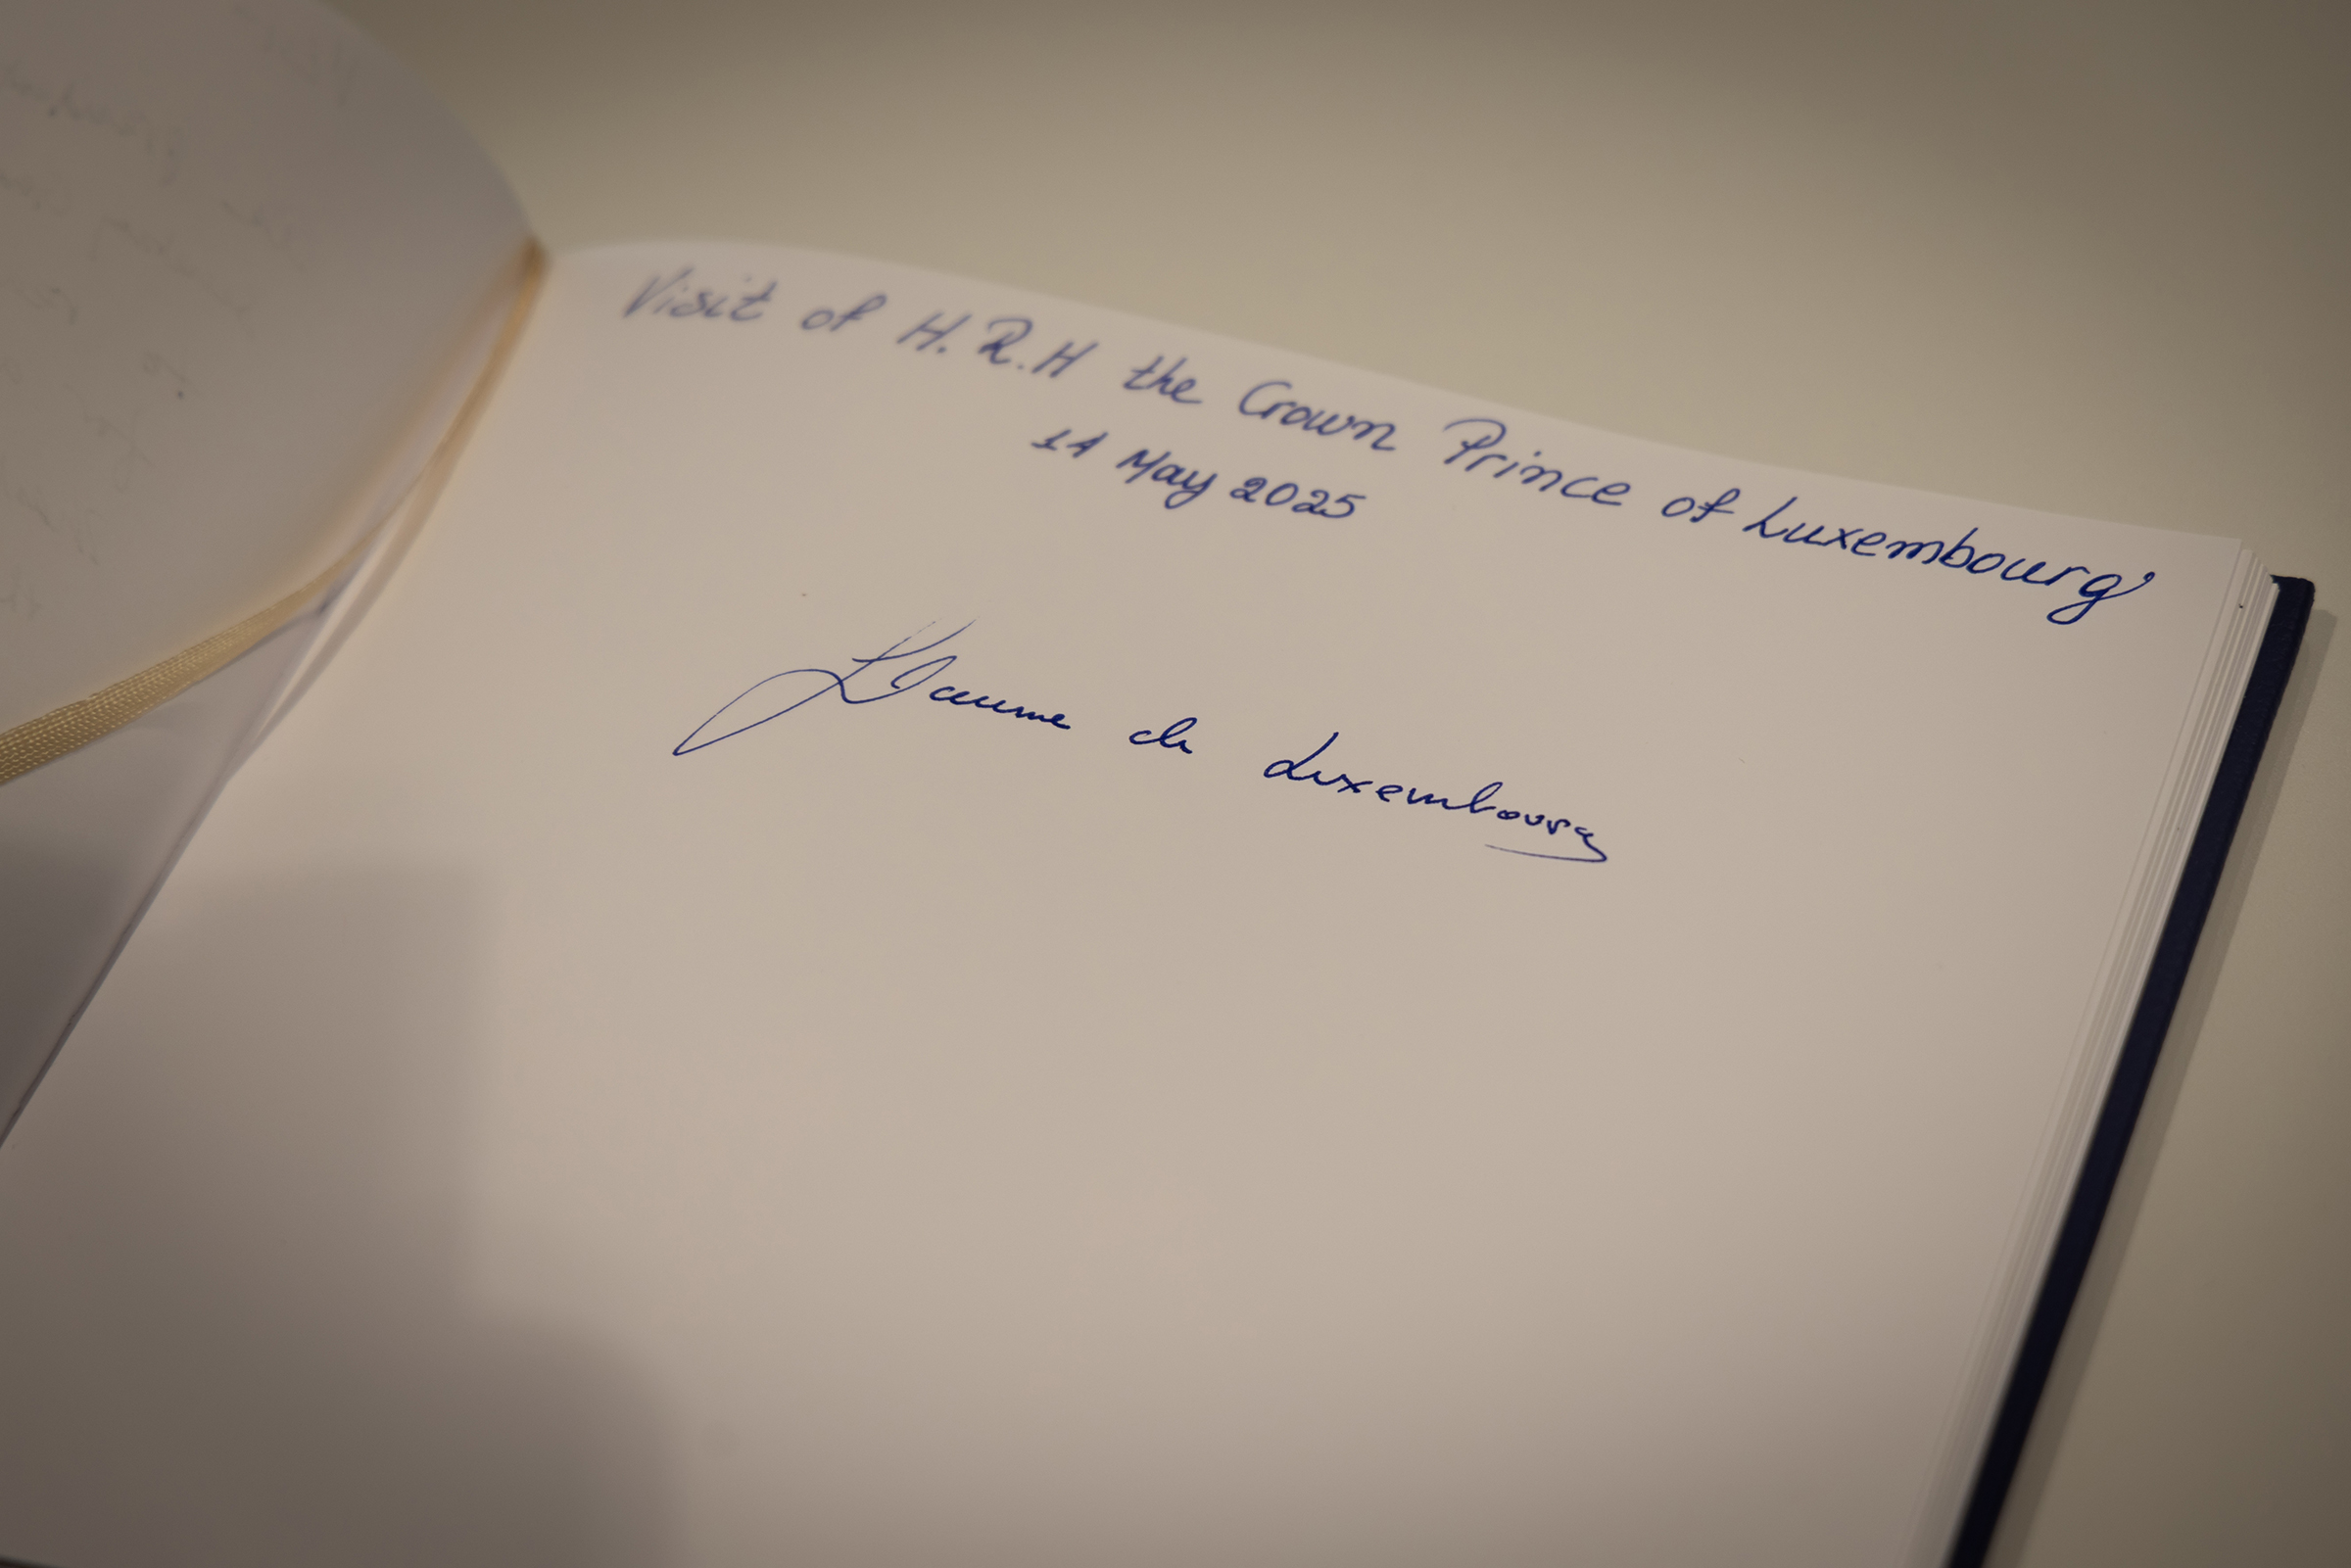 Visit of H.R.H the Crown Prince of Luxembourg
14 May 2025
Guillaume de Luxembourg